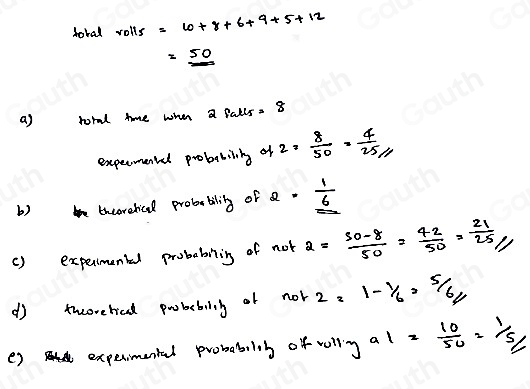 total rolls = 10+8+6+9+5+12
= 50
a) total time when 2 falls = 8
experimental probability of 2 = 8/50 = 4/25//
b) theoretical probability of 2 = 1/6
c) experimental probability of not 2 = 50-8/50 = 42/50 = 21/25//
d) theoretical probability of not 2 = 1 - 1/6 = 5/6//
e) experimental probability of rolling a 1 = 10/50 = 1/5//
Gauth